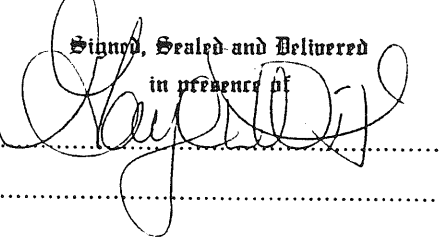 Signed, Sealed and Delivered
in presence of